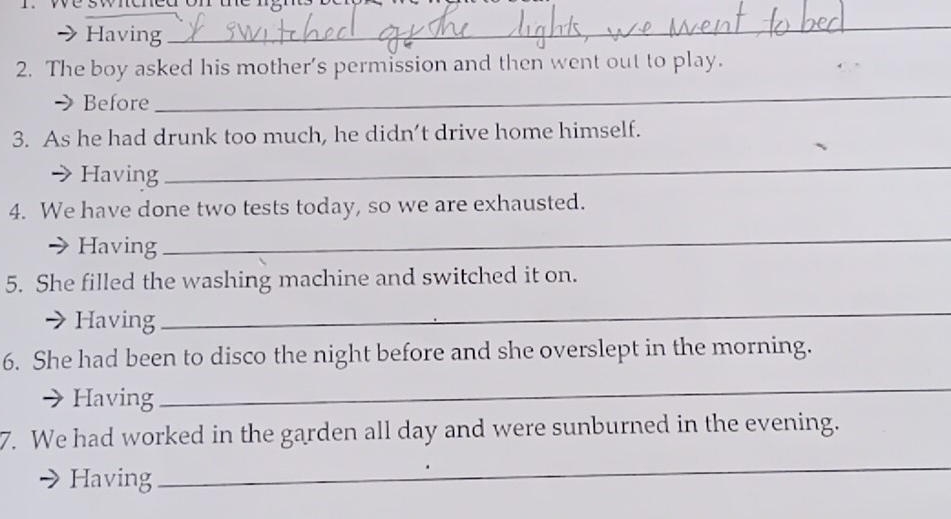 1. We switched off the lights before we went to bed.
→ Having switched off the lights, we went to bed
2. The boy asked his mother's permission and then went out to play.
→ Before
3. As he had drunk too much, he didn't drive home himself.
→ Having
4. We have done two tests today, so we are exhausted.
→ Having
5. She filled the washing machine and switched it on.
→ Having
6. She had been to disco the night before and she overslept in the morning.
→ Having
7. We had worked in the garden all day and were sunburned in the evening.
→ Having